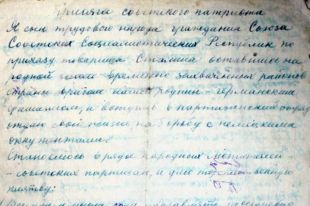 Присяга советского патриота
Я сын трудового народа гражданин Союза
Советских Социалистических Республик по
приказу товарища Сталина оставшись на
родной земле временно захваченных районов
страны врагом нашей родины – германским
фашизмом, и вступив в партизанский отряд
отдаю свой жизни на борьбу с немецкими
оккупантами.
Становясь в ряды народных мстителей
– советских партизан, я даю
клятву: